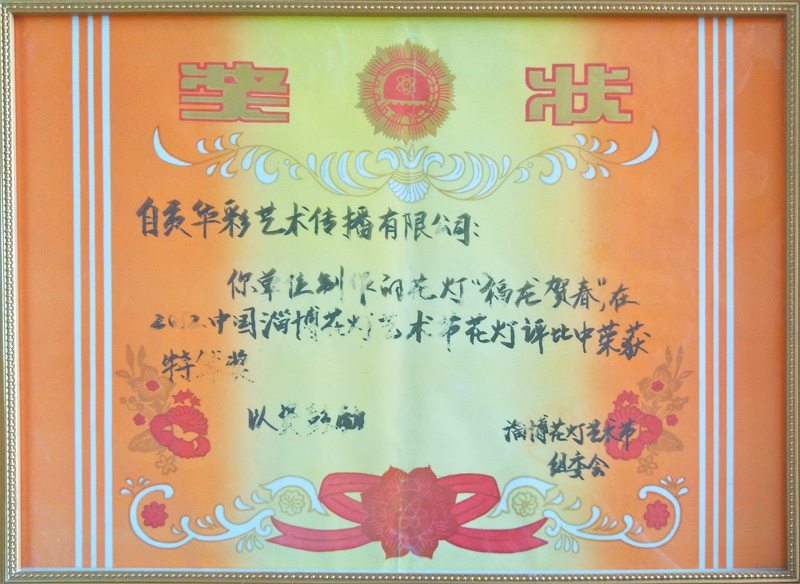 奖状
自贡华彩艺术传播有限公司:
你单位制作的花灯"福龙贺春",在
中国淄博花灯艺术节花灯评比中荣获
特等奖
以资鼓励
淄博花灯艺术节
组委会